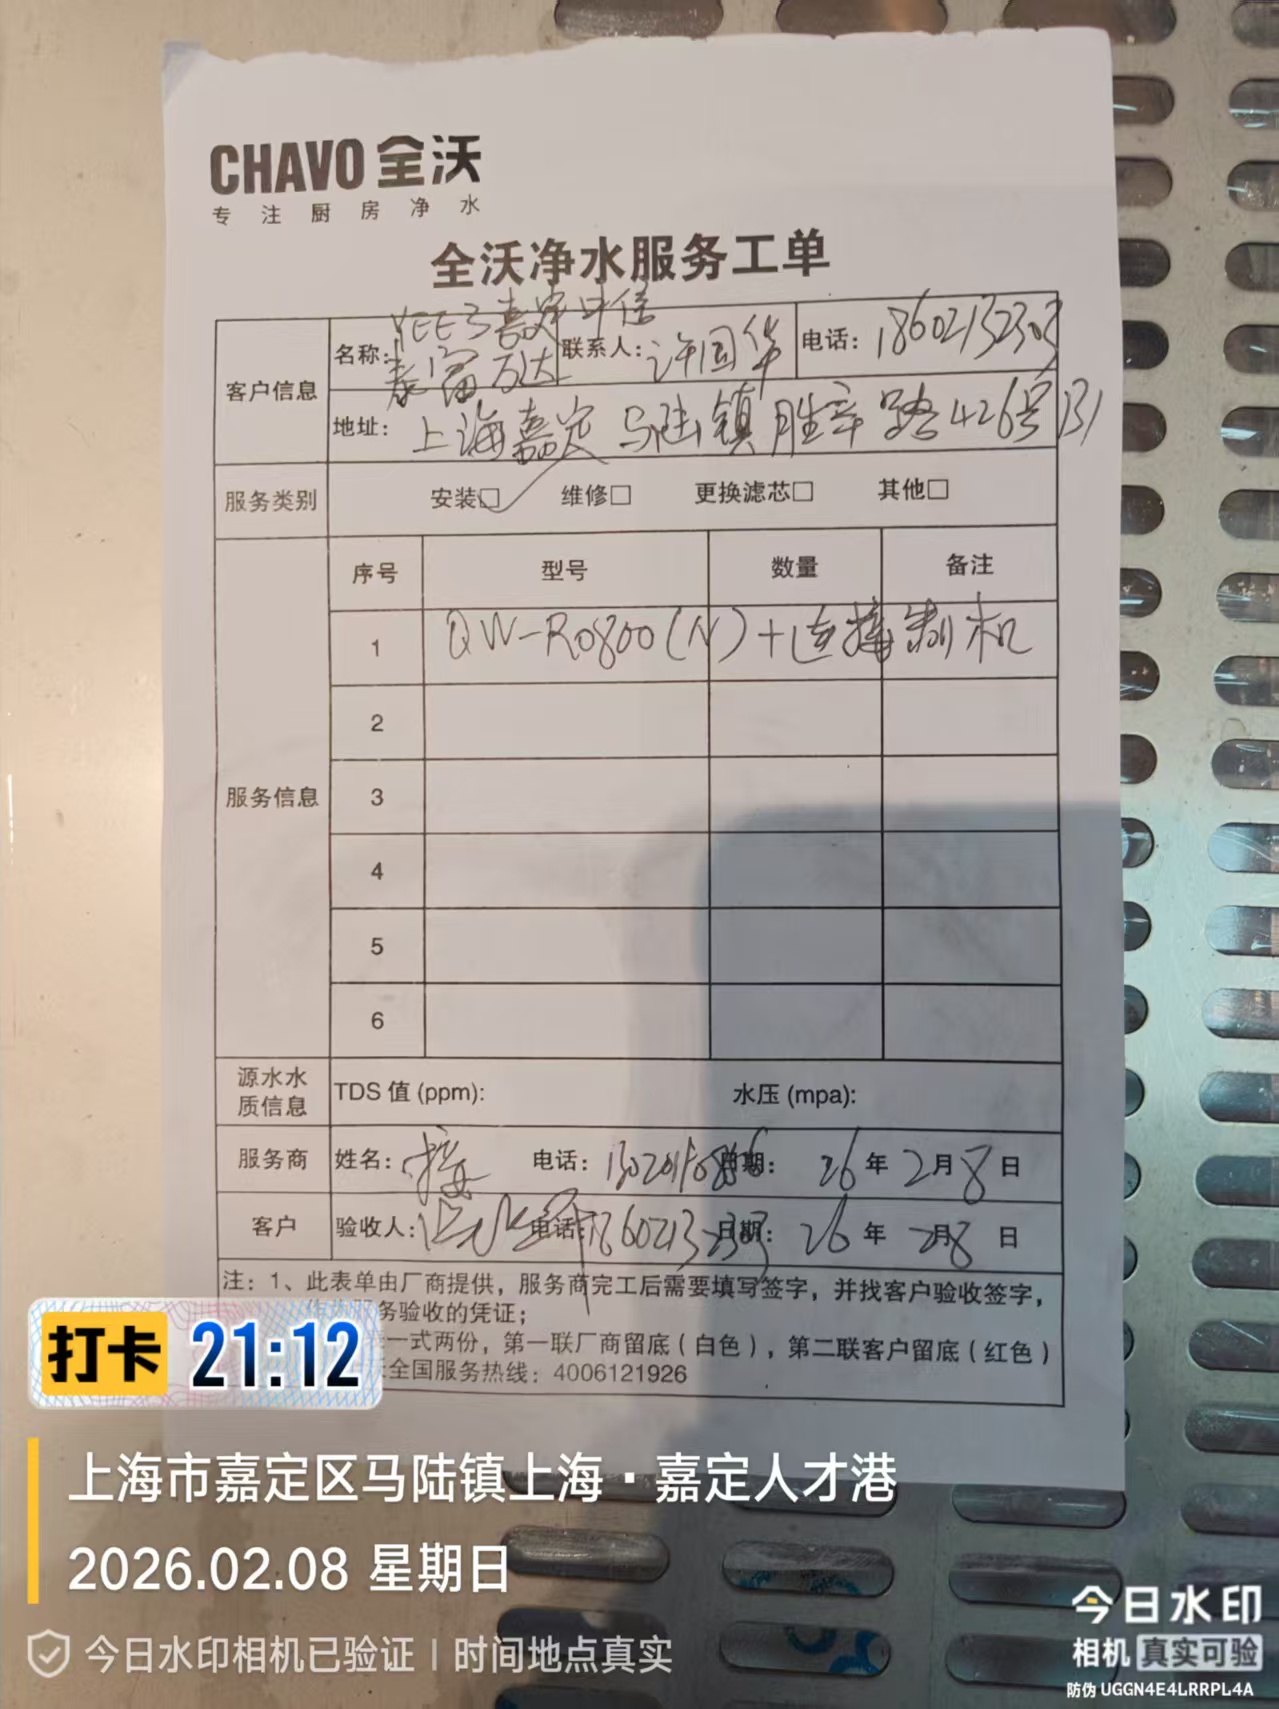 CHAVO 全沃
专注厨房净水
全沃净水服务工单
客户信息
名称: YEE3嘉定中信
泰富万达
联系人: 许国华
电话: 18602132303
地址: 上海嘉定马陆镇胜辛路426号131
服务类别
安装☑ 维修□ 更换滤芯□ 其他□
服务信息
序号 型号 数量 备注
1 QW-R0800(N)+连接制机
2
3
4
5
6
源水水
质信息
TDS 值 (ppm): 水压 (mpa):
服务商 姓名: 电话: 日期: 26 年 2 月 8 日
客户 验收人: 电话: 日期: 26 年 2 月 8 日
注: 1、此表单由厂商提供，服务商完工后需要填写签字，并找客户验收签字，
务验收的凭证；
一式两份，第一联厂商留底（白色），第二联客户留底（红色）
全国服务热线: 4006121926
打卡 21:12
上海市嘉定区马陆镇上海·嘉定人才港
2026.02.08 星期日
今日水印相机已验证 | 时间地点真实
今日水印
相机 真实可验
防伪 UGGN4E4LRRPL4A